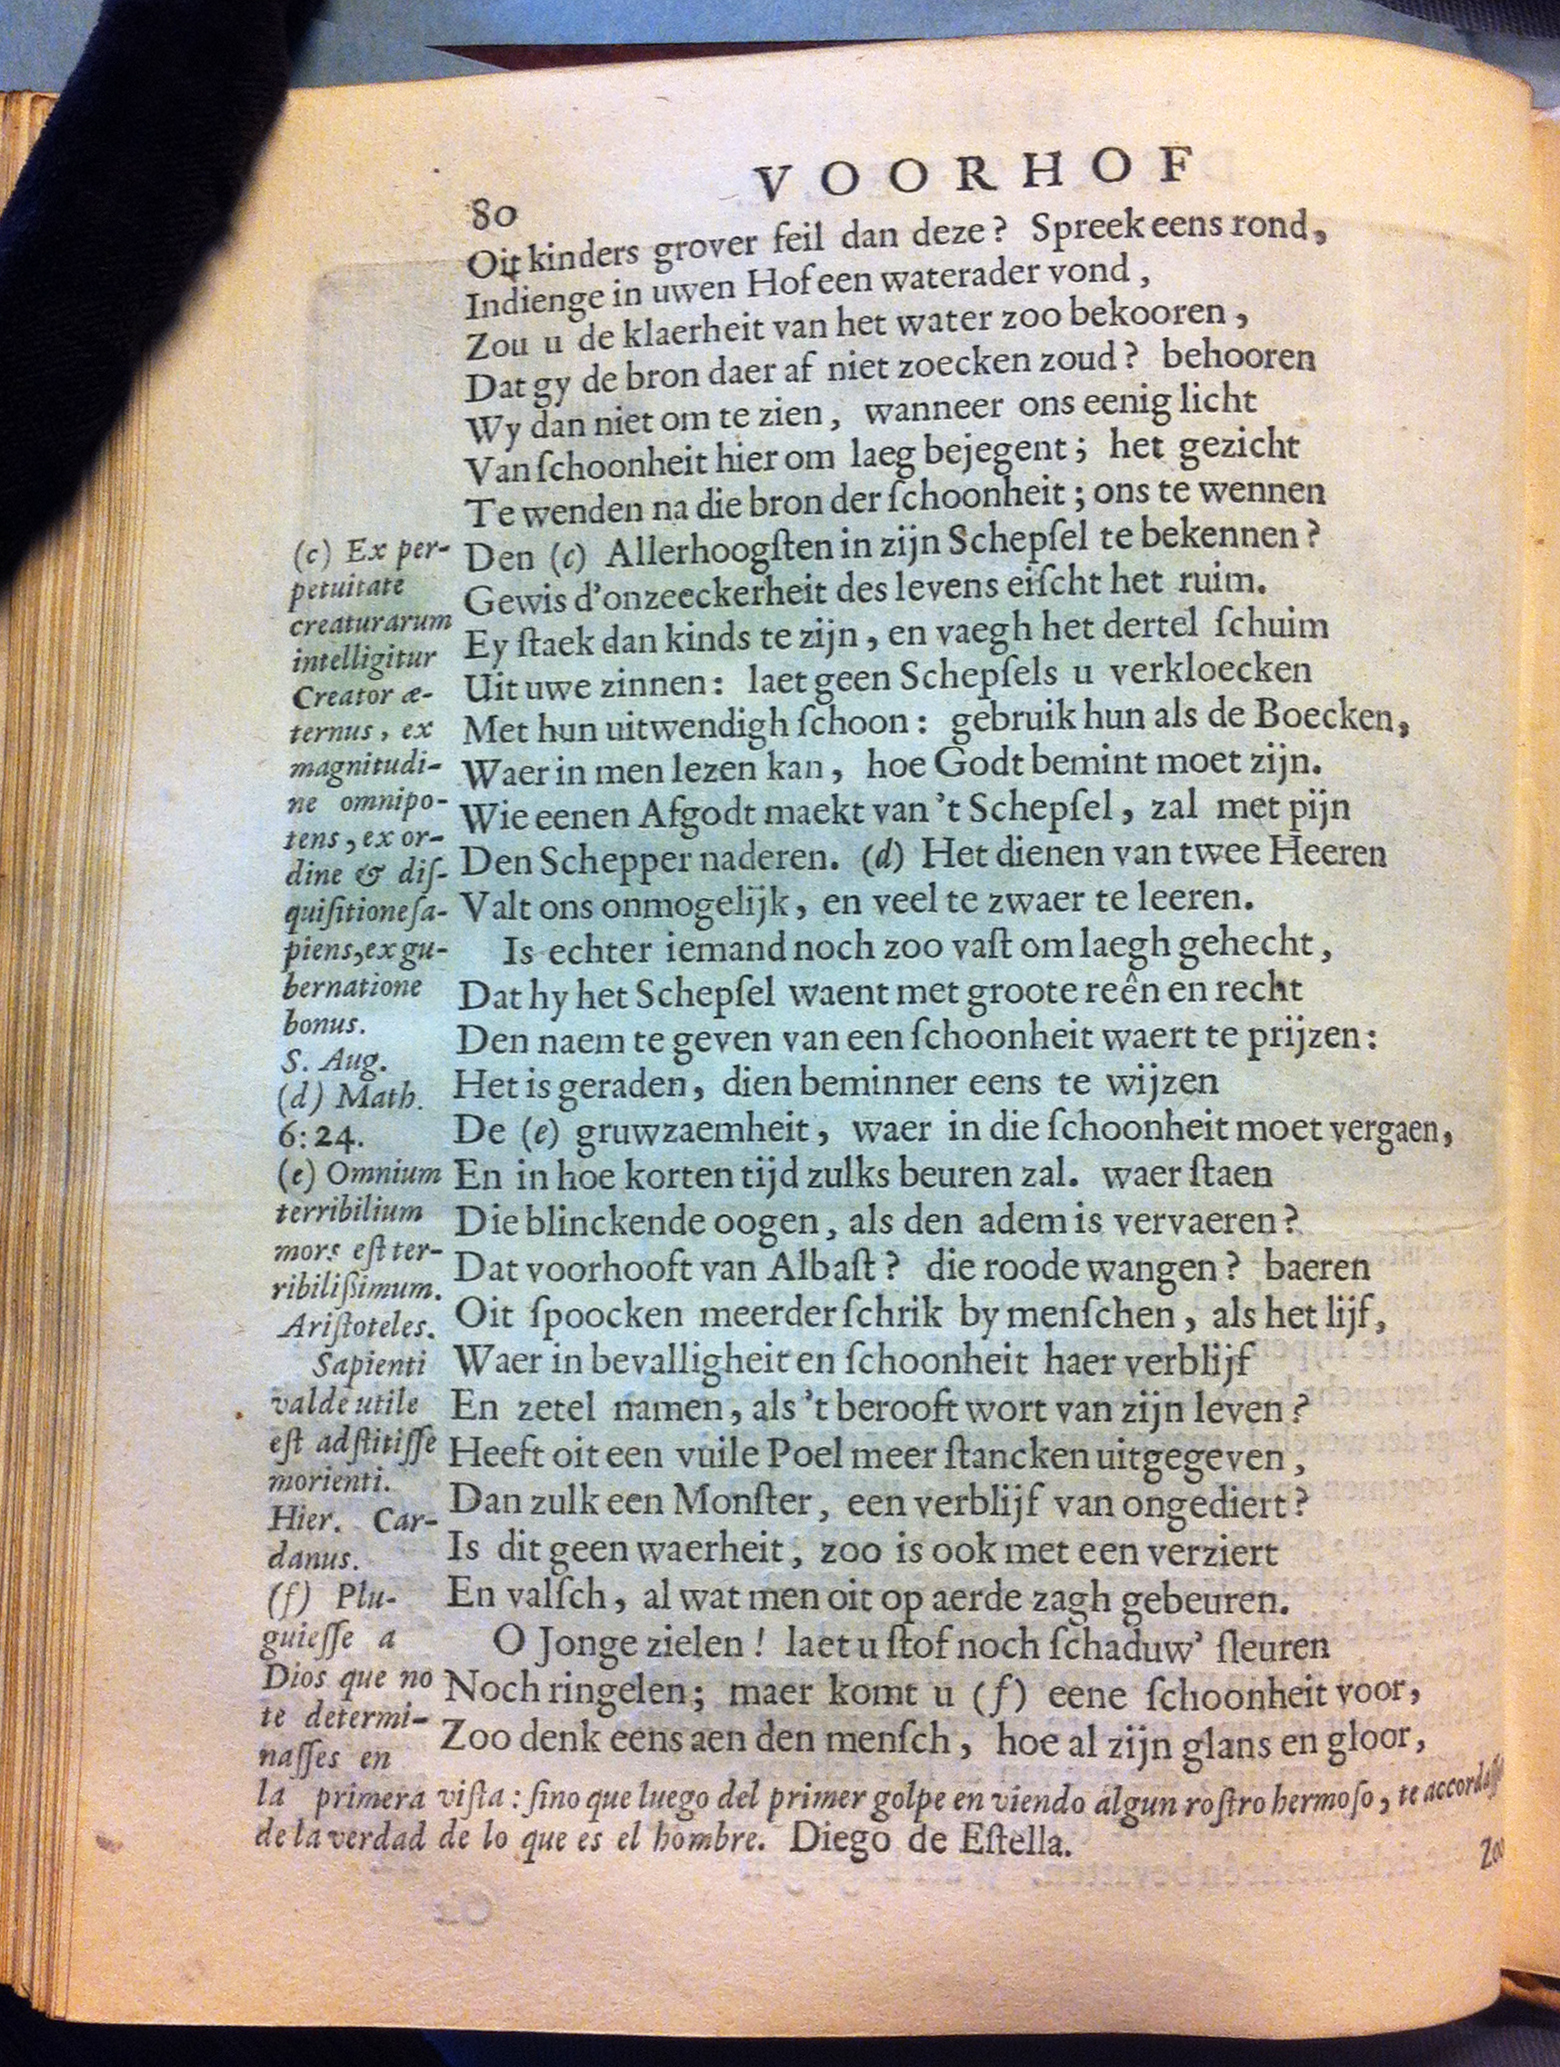 VOORHOF
80
Oit kinders grover feil dan deze? Spreek eens rond,
Indienge in uwen Hof een waterader vond,
Zou u de klaerheit van het water zoo bekooren,
Dat gy de bron daer af niet zoecken zoud? behooren
Wy dan niet om te zien, wanneer ons eenig licht
Van ſchoonheit hier om laeg bejegent; het gezicht
Te wenden na die bron der ſchoonheit; ons te wennen
Den (c) Allerhoogſten in zijn Schepſel te bekennen?
Gewis d'onzeeckerheit des levens eiſcht het ruim.
Ey ſtaek dan kinds te zijn, en vaegh het dertel ſchuim
Uit uwe zinnen: laet geen Schepſels u verkloecken
Met hun uitwendigh ſchoon: gebruik hun als de Boecken,
Waer in men lezen kan, hoe Godt bemint moet zijn.
Wie eenen Afgodt maekt van 't Schepſel, zal met pijn
Den Schepper naderen. (d) Het dienen van twee Heeren
Valt ons onmogelijk, en veel te zwaer te leeren.
Is echter iemand noch zoo vaſt om laegh gehecht,
Dat hy het Schepſel waent met groote reên en recht
Den naem te geven van een ſchoonheit waert te prijzen:
Het is geraden, dien beminner eens te wijzen
De (e) gruwzaemheit, waer in die ſchoonheit moet vergaen,
En in hoe korten tijd zulks beuren zal. waer ſtaen
Die blinckende oogen, als den adem is vervaeren?
Dat voorhooft van Albaſt? die roode wangen? baeren
Oit ſpoocken meerder ſchrik by menſchen, als het lijf,
Waer in bevalligheit en ſchoonheit haer verblijf
En zetel namen, als 't berooft wort van zijn leven?
Heeft oit een vuile Poel meer ſtancken uitgegeven,
Dan zulk een Monſter, een verblijf van ongediert?
Is dit geen waerheit, zoo is ook met een verziert
En valſch, al wat men oit op aerde zagh gebeuren.
O Jonge zielen! laet u ſtof noch ſchaduw' ſleuren
Noch ringelen; maer komt u (f) eene ſchoonheit voor,
Zoo denk eens aen den menſch, hoe al zijn glans en gloor,
(c) Ex per-
petuitate
creaturarum
intelligitur
Creator æ-
ternus, ex
magnitudi-
ne omnipo-
tens, ex or-
dine & diſ-
quiſitione ſa-
piens, ex gu-
bernatione
bonus.
S. Aug.
(d) Math.
6:24.
(e) Omnium
terribilium
mors eſt ter-
ribiliſſimum.
Ariſtoteles.
Sapienti
valde utile
eſt adſtitiſſe
morienti.
Hier. Car-
danus.
(f) Plu-
guieſſe a
Dios que no
te determi-
naſſes en
la primera viſta: ſino que luego del primer golpe en viendo algun roſtro hermoſo, te accordaſſes
de la verdad de lo que es el hombre. Diego de Eſtella.
Zoo